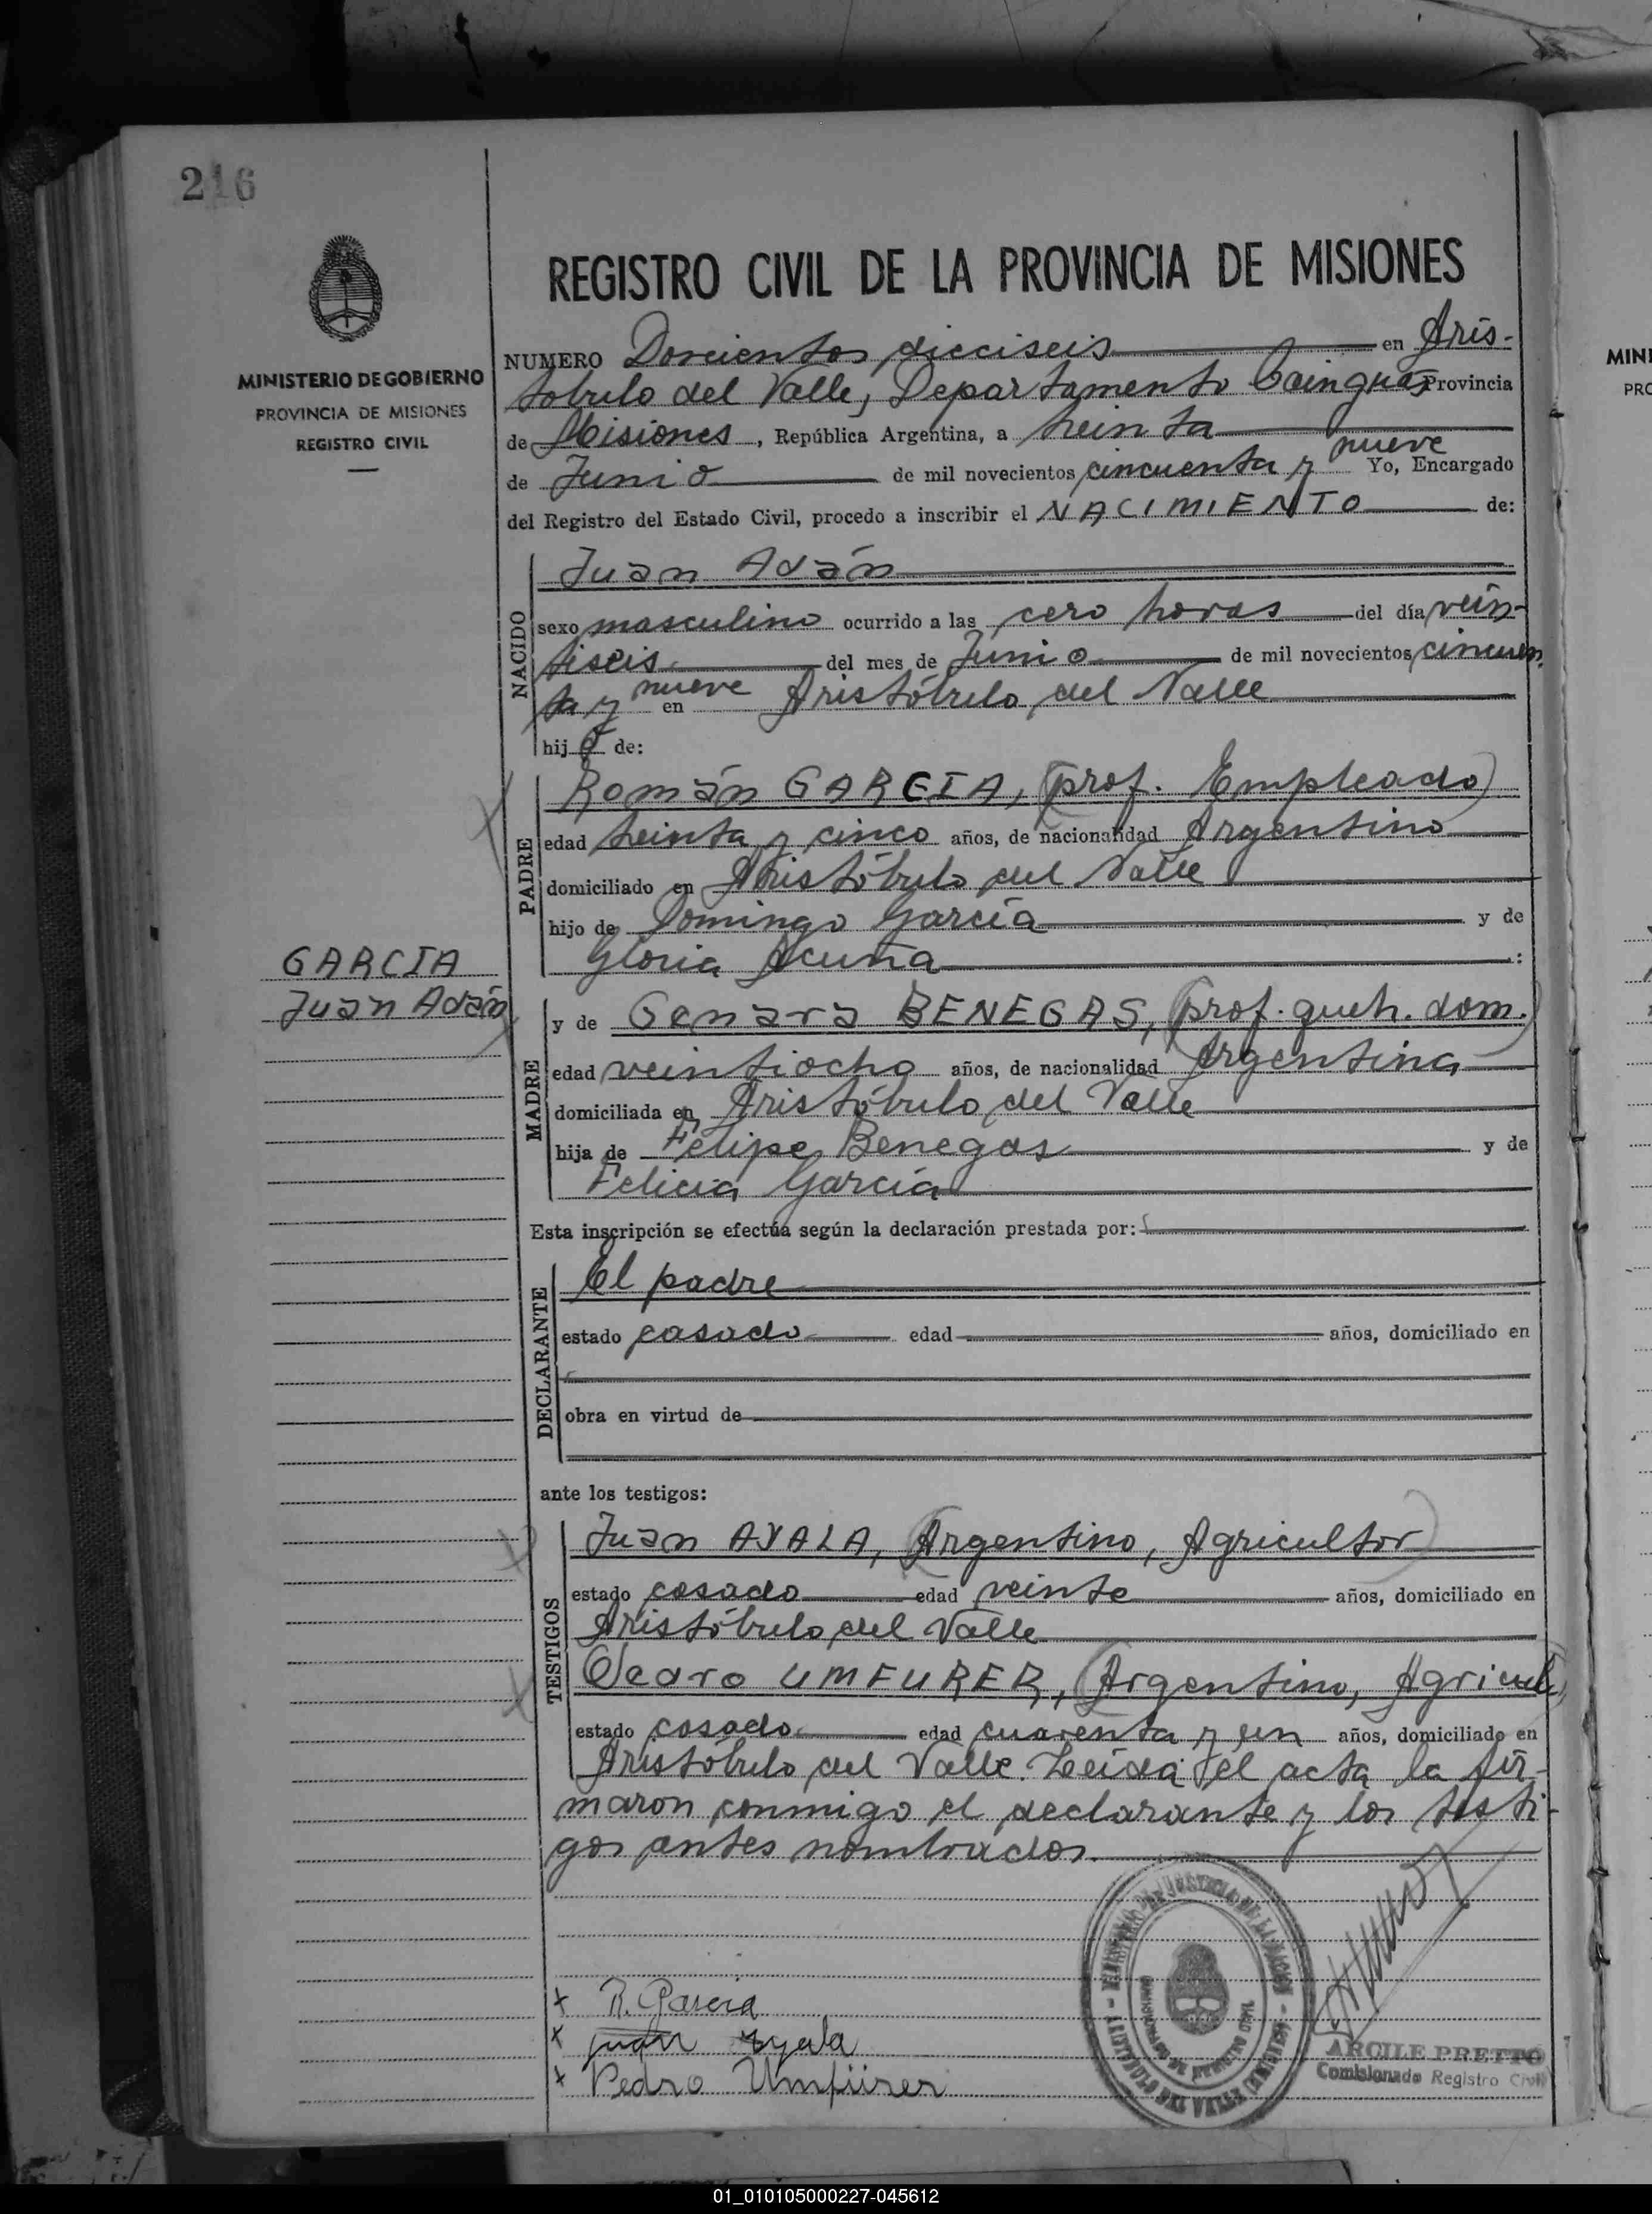 216
MINISTERIO DE GOBIERNO
PROVINCIA DE MISIONES
REGISTRO CIVIL
REGISTRO CIVIL DE LA PROVINCIA DE MISIONES
NUMERO Doscientos dieciseis en Aris-
tobulo del Valle, Departamento Cainguás Provincia
de Misiones, República Argentina, a treinta
de Junio de mil novecientos cincuenta y nueve Yo, Encargado
del Registro del Estado Civil, procedo a inscribir el NACIMIENTO de:
NACIDO
Juan Adán
sexo masculino ocurrido a las cero horas del día vein-
tiseis del mes de Junio de mil novecientos cincuen
ta y nueve en Aristóbulo del Valle
hijo de:
PADRE
Román GARCIA, (prof. Empleado)
edad treinta y cinco años, de nacionalidad Argentino
domiciliado en Aristóbulo del Valle
hijo de Domingo García y de
Gloria Acuña :
GARCIA
Juan Adán
MADRE
y de Genara BENEGAS, (prof. queh. dom.)
edad veintiocho años, de nacionalidad Argentina
domiciliada en Aristóbulo del Valle
hija de Felipe Benegas y de
Felicia García
Esta inscripción se efectúa según la declaración prestada por:
DECLARANTE
El padre
estado casado edad años, domiciliado en
obra en virtud de
ante los testigos:
TESTIGOS
Juan AYALA, (Argentino, Agricultor)
estado casado edad veinte años, domiciliado en
Aristóbulo del Valle
Pedro UMFURER, (Argentino, Agricult)
estado casado edad cuarenta y un años, domiciliado en
Aristóbulo del Valle. Leída el acta la fir-
maron conmigo el declarante y los testi-
gos antes nombrados.
x R. Garcia
x juan ayala
x Pedro Umfürer
ARGILE PRETTO
Comisionado Registro Civil
MINI
PRO
01_010105000227-045612